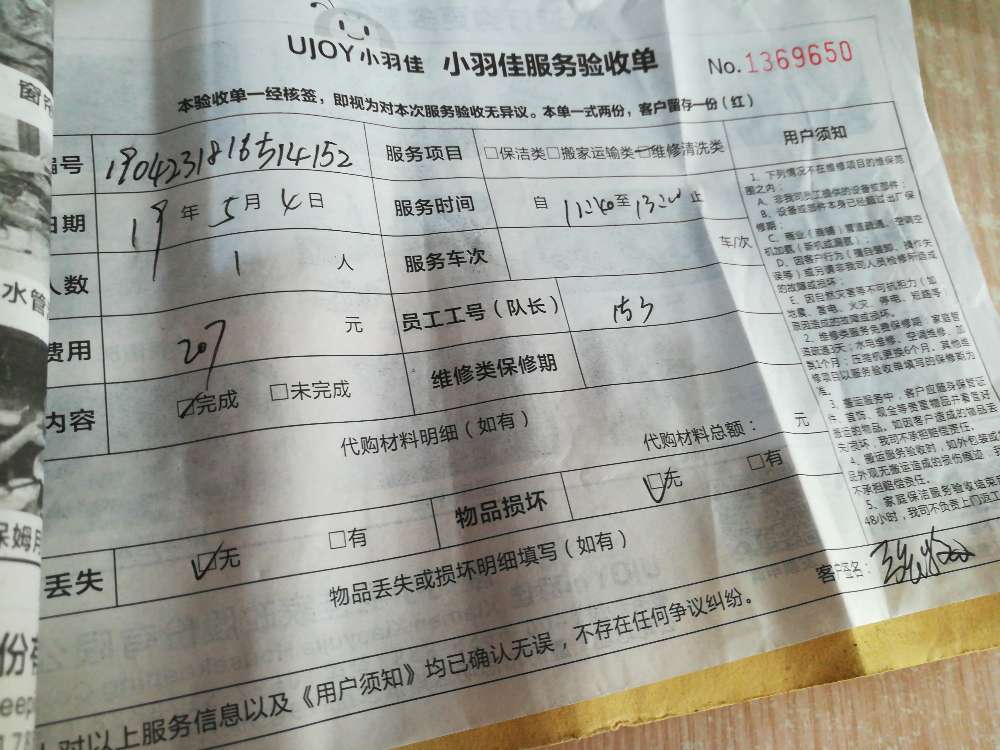 UJOY小羽佳 小羽佳服务验收单 No.1369650
本验收单一经核签，即视为对本次服务验收无异议。本单一式两份，客户留存一份（红）
编号
服务项目 □保洁类□搬家运输类□维修清洗类
日期 19年5月4日
服务时间 自 至 止
人数 1人
服务车次 车/次
费用 207元
员工工号（队长）
维修类保修期
内容 ☑完成 □未完成
代购材料明细（如有）
代购材料总额： 元
丢失 ☑无 □有
物品损坏 ☑无 □有
物品丢失或损坏明细填写（如有）
对以上服务信息以及《用户须知》均已确认无误，不存在任何争议纠纷。
客户签名：
用户须知
1、下列情况不在维修项目的维保范
围之内：
A、非我司员工提供的设备或部件；
B、设备或部件本身已经超过出厂保
修期；
C、商业（商铺）管道疏通、空调空
机加氨（新机或漏氨）；
D、因客户行为（擅自装卸、操作失
误等）或另请非我司人员检修所造成
的故障或损坏；
E、因自然灾害等不可抗拒力（如
地震、雷电、火灾、停电、短路等）
原因造成的故障或损坏。
2、维修类服务免费保修期：家庭管
道疏通3天；水电维修、空调维修、加
氨1个月；压缩机更换6个月，其他维
修项目以服务验收单填写的保修期为
准。
3、搬运服务中，客户应随身保管证
件、首饰、现金等贵重物品并看管好
搬运的物品，如因客户造成的物品丢
失损坏，我司不承担赔偿责任。
4、搬运服务验收时，如外包装或
品外观无搬运造成的损伤痕迹，我
不承担赔偿责任。
5、家庭保洁服务验收结束
48小时，我司不负责上门返工
水管
保姆
份